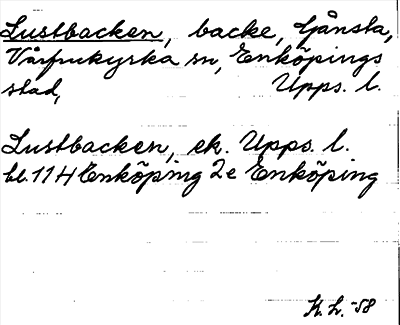 Lustbacken, backe, Gånsta,
Vårfrukyrka sn, Enköpings
stad, Upps. l.
Lustbacken, ek. Upps. l.
bl. 11 H Enköping 2 e Enköping
K. L. -58